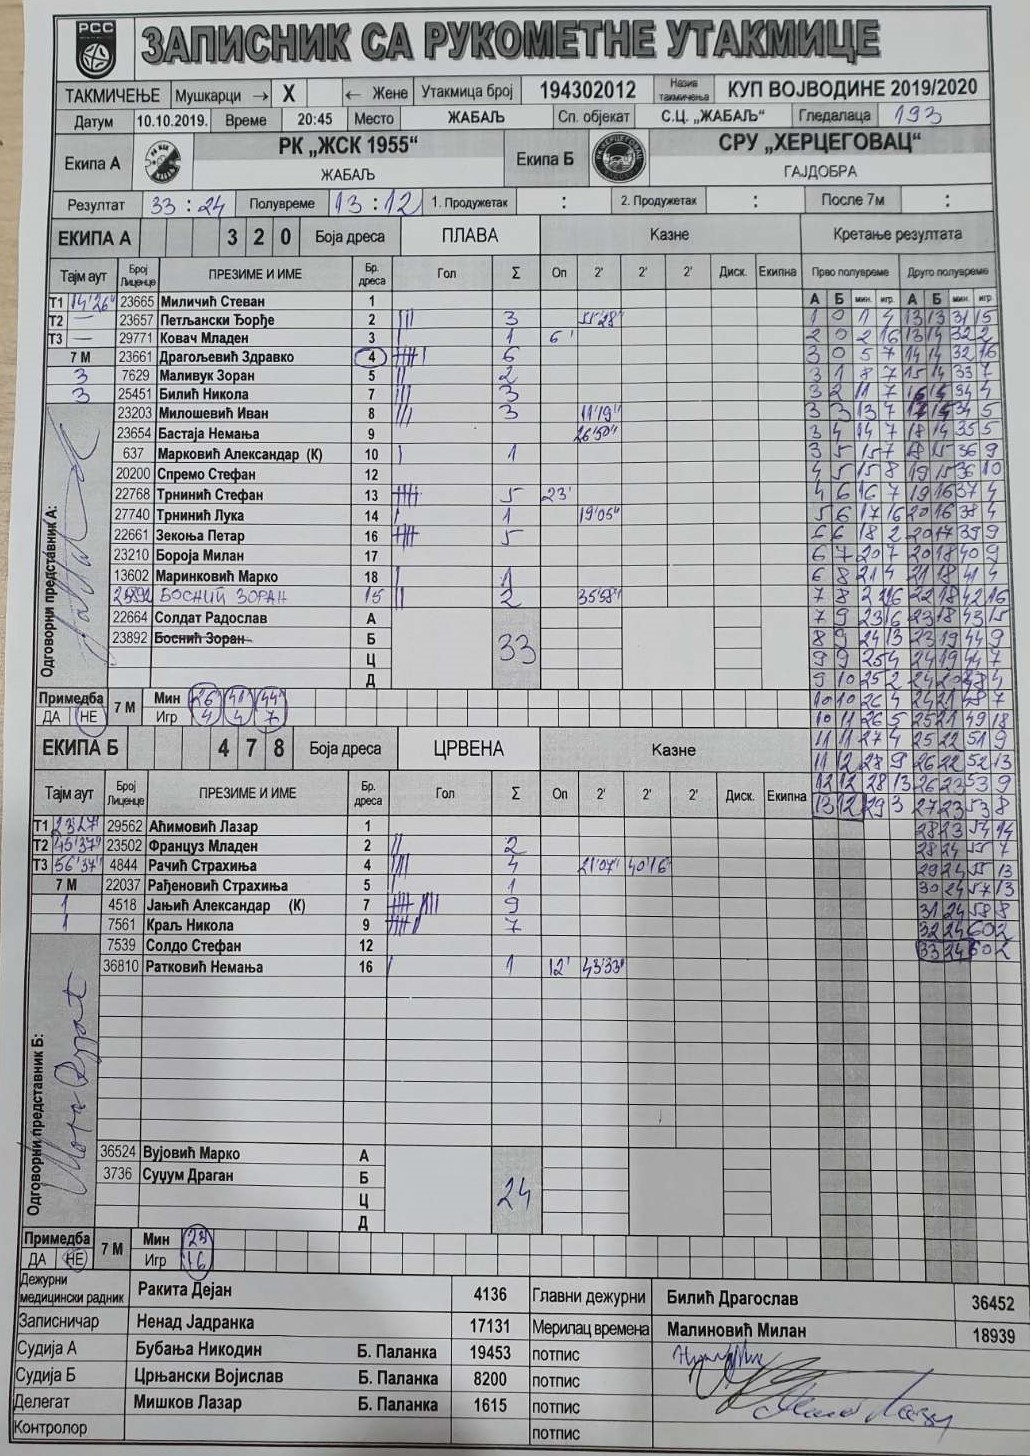 РСС
ЗАПИСНИК СА РУКОМЕТНЕ УТАКМИЦЕ
ТАКМИЧЕЊЕ Мушкарци → X ← Жене Утакмица број 194302012 Назив такмичења КУП ВОЈВОДИНЕ 2019/2020
Датум 10.10.2019. Време 20:45 Место ЖАБАЉ Сп. објекат С.Ц. „ЖАБАЉ“ Гледалаца 193
Екипа А РК „ЖСК 1955“ ЖАБАЉ Екипа Б СРУ „ХЕРЦЕГОВАЦ“ ГАЈДОБРА
Резултат 33 : 24 Полувреме 13 : 12 1. Продужетак : 2. Продужетак : После 7м :
ЕКИПА А 3 2 0 Боја дреса ПЛАВА Казне Кретање резултата
Тајм аут Број Лиценце ПРЕЗИМЕ И ИМЕ Бр. дреса Гол Σ Оп 2' 2' 2' Диск. Екипна Прво полувреме Друго полувреме
А Б мин. игр. А Б мин игр
Т1 14'26" 23665 Миличић Стеван 1
Т2 — 23657 Петљански Ђорђе 2 3 55'28"
Т3 — 29771 Ковач Младен 3 1 6'
7 М 23661 Драгољевић Здравко 4 6
3 7629 Маливук Зоран 5 2
3 25451 Билић Никола 7 3
23203 Милошевић Иван 8 3 11'19"
23654 Бастаја Немања 9 26'50"
637 Марковић Александар (К) 10 1
20200 Спремо Стефан 12
22768 Трнинић Стефан 13 5 23'
27740 Трнинић Лука 14 1 19'05"
22661 Зекоња Петар 16 5
23210 Бороја Милан 17
13602 Маринковић Марко 18 1
23892 БОСНИЋ ЗОРАН 15 2 35'58"
22664 Солдат Радослав А
23892 Боснић Зоран Б
33
Ц
Д
Одговорни представник А:
Примедба ДА НЕ 7 М Мин 26 41 44
Игр 4 4 7
1 0 1 4 13 13 31 5
2 0 2 16 13 14 32 2
3 0 5 7 14 14 32 16
3 1 8 7 15 14 33 7
3 2 11 7 16 14 34 4
3 3 13 7 17 14 34 5
3 4 14 7 18 14 35 5
3 5 15 7 18 15 36 9
4 5 15 8 19 15 36 10
4 6 16 7 19 16 37 4
5 6 17 16 20 16 38 4
6 6 18 2 20 17 39 9
6 7 20 7 20 18 40 9
6 8 21 4 21 18 41 4
7 8 22 16 22 18 42 16
7 9 23 16 23 18 43 15
8 9 24 13 23 19 44 9
9 9 25 4 24 19 44 7
9 10 25 2 24 20 4
10 10 26 4 24 21 48 7
10 11 26 5 25 21 49 18
11 11 27 4 25 22 51 9
11 12 28 9 26 22 52 13
12 12 28 13 26 23 53 9
13 12 29 3 27 23 53 8
28 23 54 14
28 24 55 7
29 24 55 13
30 24 57 13
31 24 58 8
32 24 60 2
33 24 60 2
ЕКИПА Б 4 7 8 Боја дреса ЦРВЕНА Казне
Тајм аут Број Лиценце ПРЕЗИМЕ И ИМЕ Бр. дреса Гол Σ Оп 2' 2' 2' Диск. Екипна
Т1 23'27" 29562 Аћимовић Лазар 1
Т2 45'37" 23502 Француз Младен 2 2
Т3 56'37" 4844 Рачић Страхиња 4 4 21'07" 40'16"
7 М 22037 Рађеновић Страхиња 5 1
1 4518 Јањић Александар (К) 7 9
1 7561 Краљ Никола 9 7
7539 Солдо Стефан 12
36810 Ратковић Немања 16 1 12' 43'33"
Одговорни представник Б:
36524 Вујовић Марко А
3736 Суџум Драган Б
24
Ц
Д
Примедба ДА НЕ 7 М Мин 23
Игр 16
Дежурни медицински радник Ракита Дејан 4136 Главни дежурни Билић Драгослав 36452
Записничар Ненад Јадранка 17131 Мерилац времена Малиновић Милан 18939
Судија А Бубања Никодин Б. Паланка 19453 потпис
Судија Б Црњански Војислав Б. Паланка 8200 потпис
Делегат Мишков Лазар Б. Паланка 1615 потпис
Контролор потпис